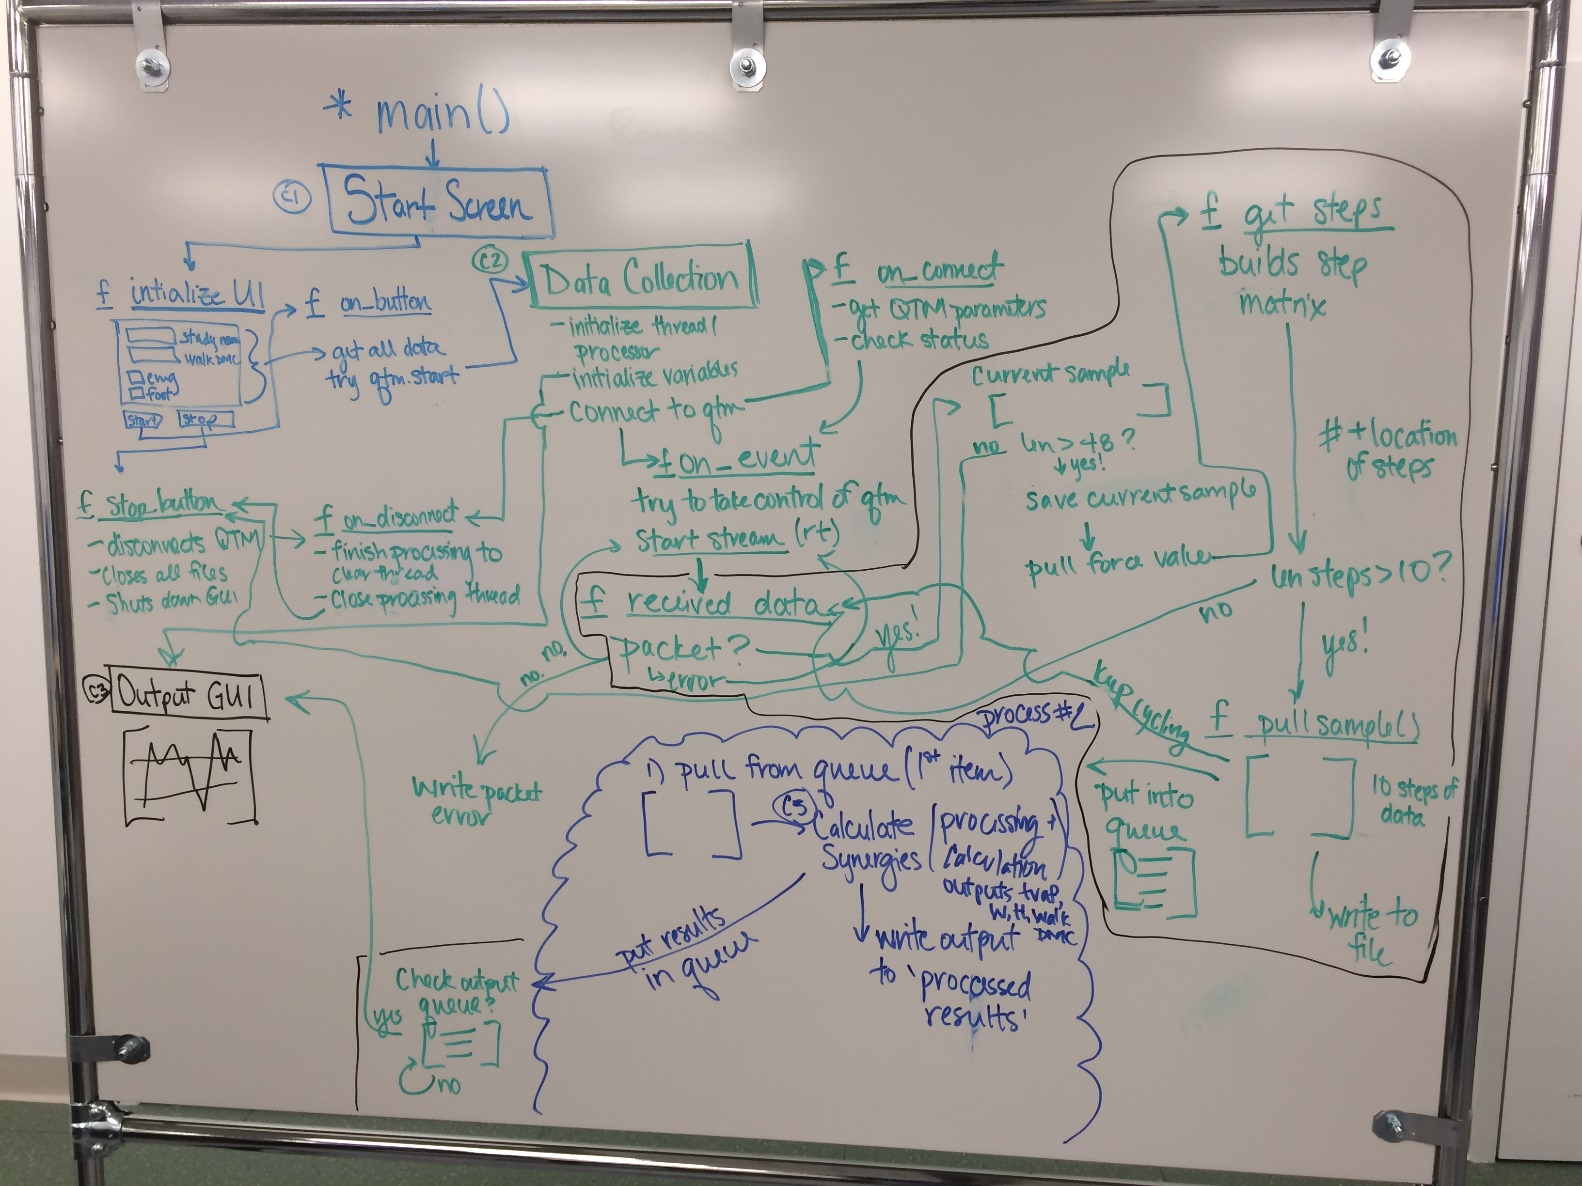 * main()
C1
Start Screen
f intialize UI
study nam
walk DMC
emg
foot
start
stop
f on_button
get all data
try qtm.start
C2
Data Collection
- initialize thread/
processor
- initialize variables
- connect to qtm
f on_connect
- get QTM parameters
- check status
f on_event
try to take control of qtm
Start stream (rt)
f stop_button
- disconnects QTM
- Closes all files
- Shuts down GUI
f on_disconnect
- finish processing to
clear thread
- Close processing thread
f recived data
packet?
↳ error
yes!
no.
no.
Write packet
error
Current sample
[ ]
no
len > 48?
↓ yes!
save current sample
pull force value
f get steps
builds step
matrix
# + location
of steps
len steps > 10?
no
yes!
f pull sample()
10 steps of
data
write to
file
keep cycling
put into
queue
C3
Output GUI
process #2
1) pull from queue (1st item)
C5
Calculate
Synergies
(processing +
Calculation)
outputs tvaf,
W, H, walk
DMC
write output
to 'processed
results'
put results
in queue
Check output
queue?
yes
no